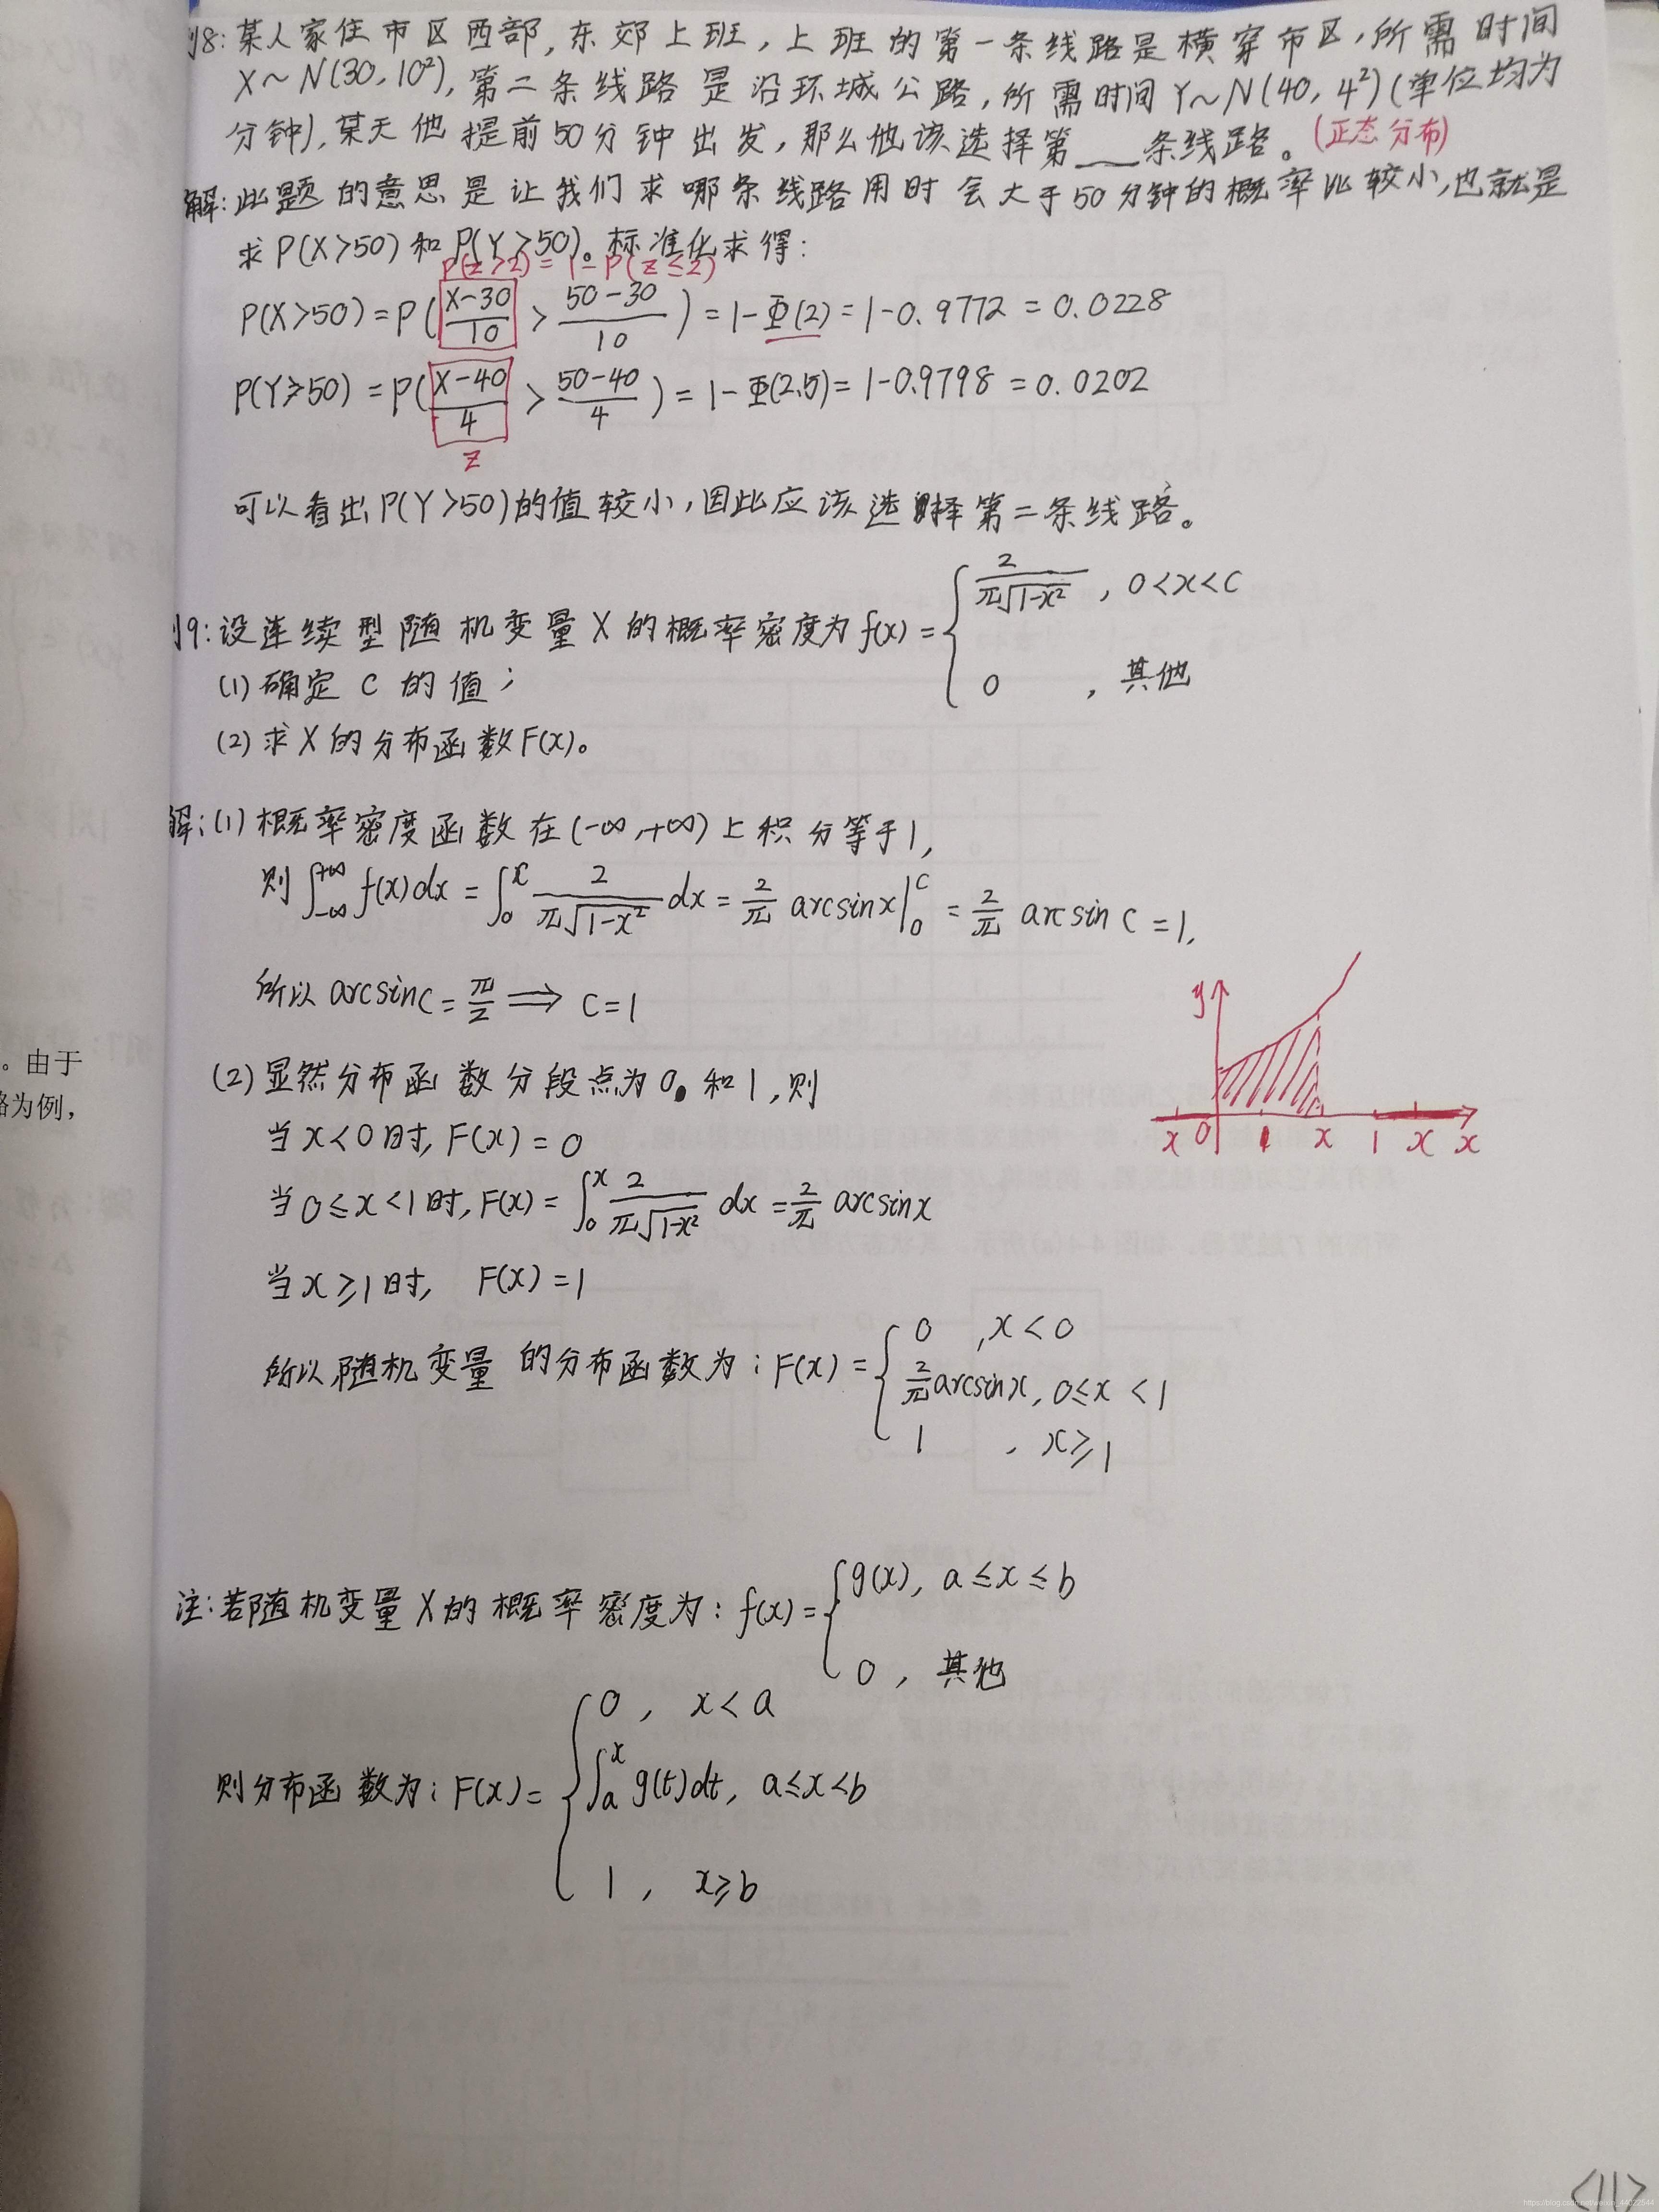 例8:某人家住市区西部,东郊上班,上班的第一条线路是横穿市区,所需时间
X~N(30,10²),第二条线路是沿环城公路,所需时间Y~N(40,4²)(单位均为
分钟),某天他提前50分钟出发,那么他该选择第___条线路。(正态分布)
解:此题的意思是让我们求哪条线路用时会大于50分钟的概率比较小,也就是
求P(X>50)和P(Y>50)。标准化求得:
P(z>2)=1-P(z≤2)
P(X>50)=P(\frac{X-30}{10}>\frac{50-30}{10})=1-Φ(2)=1-0.9772=0.0228
P(Y≥50)=P(\frac{X-40}{4}>\frac{50-40}{4})=1-Φ(2.5)=1-0.9798=0.0202
z
可以看出P(Y>50)的值较小,因此应该选择第二条线路。
例9:设连续型随机变量X的概率密度为f(x)={\frac{2}{π\sqrt{1-x²}},0<x<c
0,其他
(1)确定c的值;
(2)求X的分布函数F(x)。
解:(1)概率密度函数在(-∞,+∞)上积分等于1,
则∫_{-∞}^{+∞}f(x)dx=∫_0^x\frac{2}{π\sqrt{1-x²}}dx=\frac{2}{π}arcsinx|_0^c=\frac{2}{π}arcsinc=1,
所以arcsinc=\frac{π}{2}⟹c=1
y
x 0 1 x 1 x x
(2)显然分布函数分段点为0和1,则
当x<0时,F(x)=0
当0≤x<1时,F(x)=∫_0^x\frac{2}{π\sqrt{1-x²}}dx=\frac{2}{π}arcsinx
当x≥1时,F(x)=1
所以,随机变量的分布函数为:F(x)={0,x<0
\frac{2}{π}arcsinx,0≤x<1
1,x≥1
注:若随机变量X的概率密度为:f(x)={g(x),a≤x≤b
0,其他
则分布函数为:F(x)={0,x<a
∫_a^x g(t)dt,a≤x<b
1,x≥b
。由于
路为例,
<11>